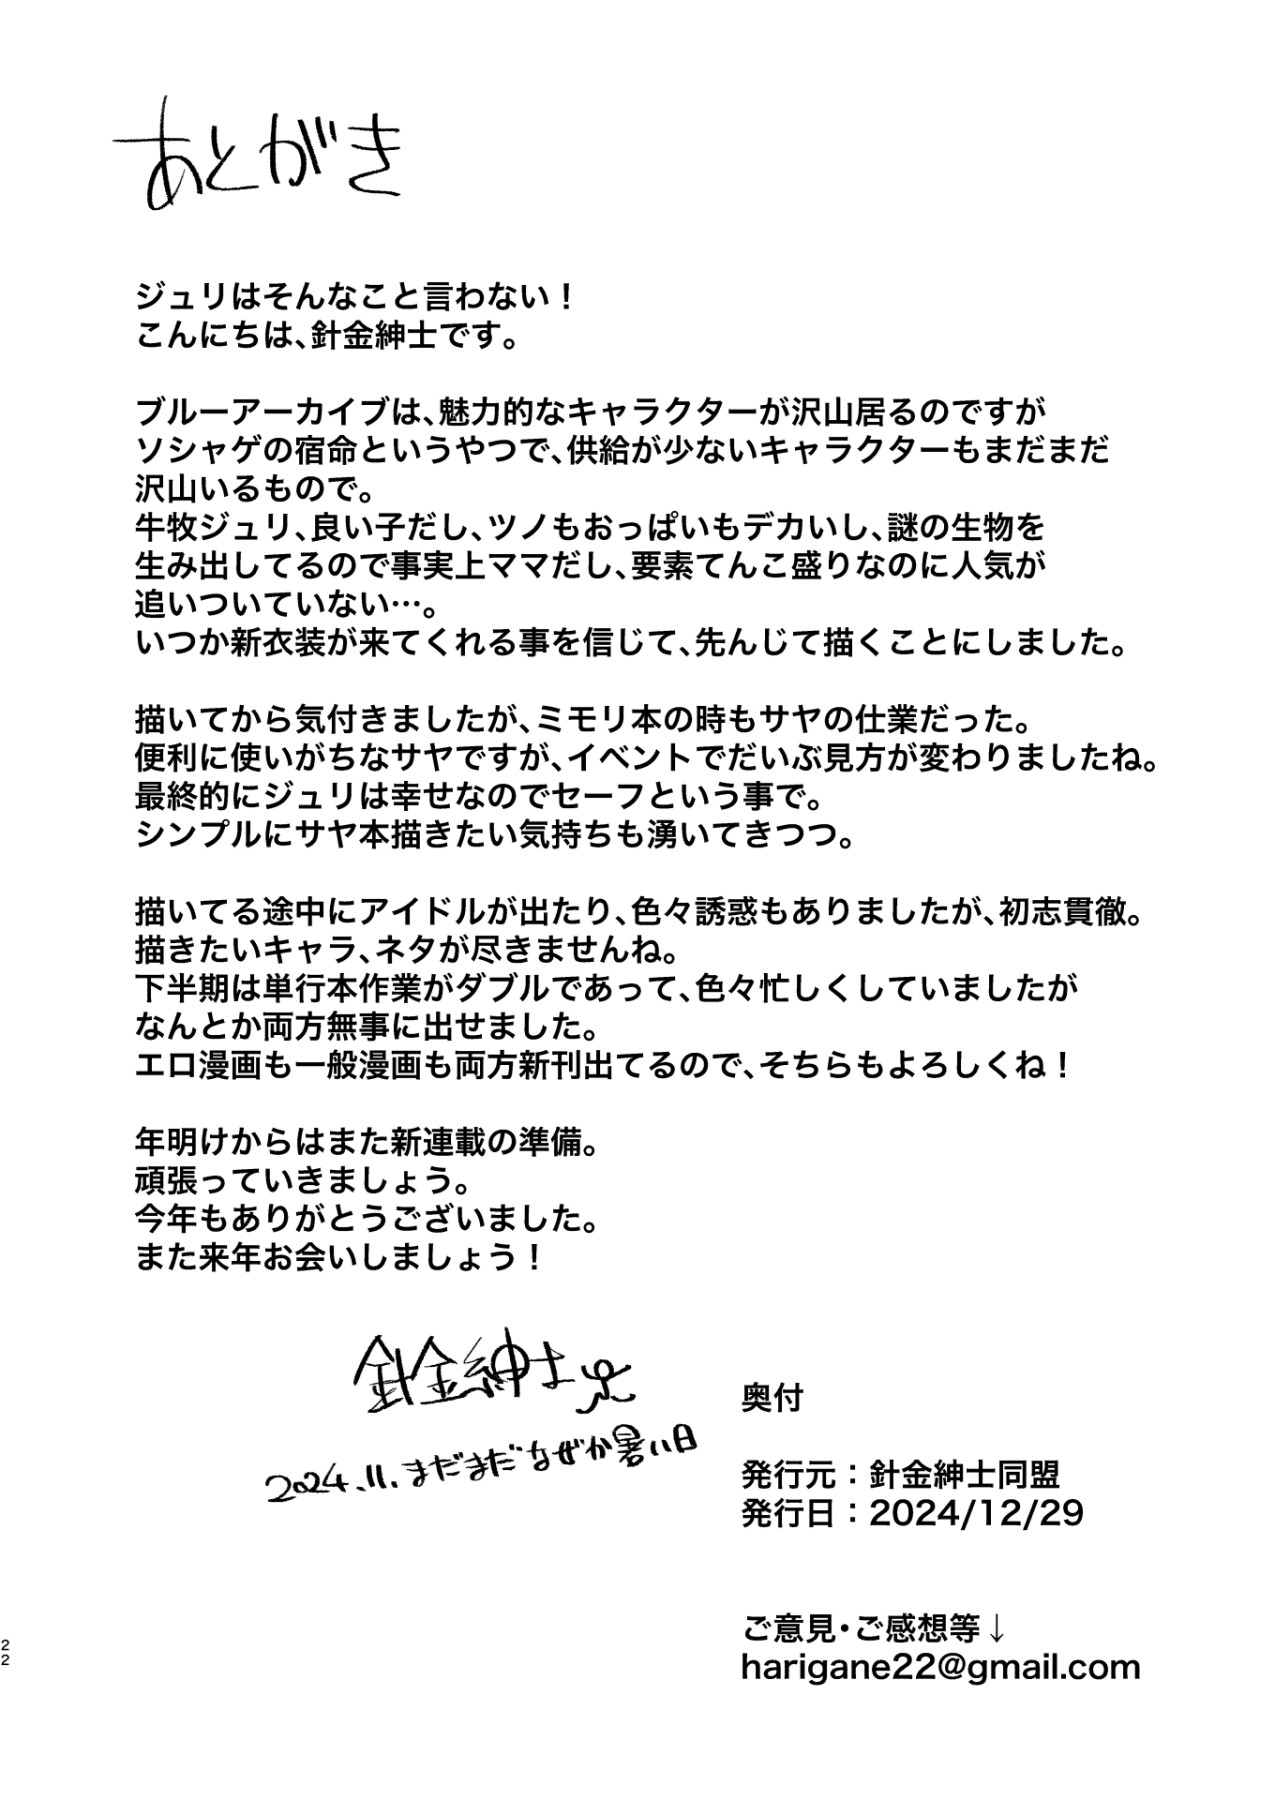 あとがき
ジュリはそんなこと言わない！
こんにちは、針金紳士です。
ブルーアーカイブは、魅力的なキャラクターが沢山居るのですが
ソシャゲの宿命というやつで、供給が少ないキャラクターもまだまだ
沢山いるもので。
牛牧ジュリ、良い子だし、ツノもおっぱいもデカいし、謎の生物を
生み出してるので事実上ママだし、要素てんこ盛りなのに人気が
追いついていない…。
いつか新衣装が来てくれる事を信じて、先んじて描くことにしました。
描いてから気付きましたが、ミモリ本の時もサヤの仕業だった。
便利に使いがちなサヤですが、イベントでだいぶ見方が変わりましたね。
最終的にジュリは幸せなのでセーフという事で。
シンプルにサヤ本描きたい気持ちも湧いてきつつ。
描いてる途中にアイドルが出たり、色々誘惑もありましたが、初志貫徹。
描きたいキャラ、ネタが尽きませんね。
下半期は単行本作業がダブルであって、色々忙しくしていましたが
なんとか両方無事に出せました。
エロ漫画も一般漫画も両方新刊出てるので、そちらもよろしくね！
年明けからはまた新連載の準備。
頑張っていきましょう。
今年もありがとうございました。
また来年お会いしましょう！
針金紳士
2024.11.まだまだなぜか暑い日
奥付
発行元：針金紳士同盟
発行日：2024/12/29
ご意見・ご感想等↓
harigane22@gmail.com
22